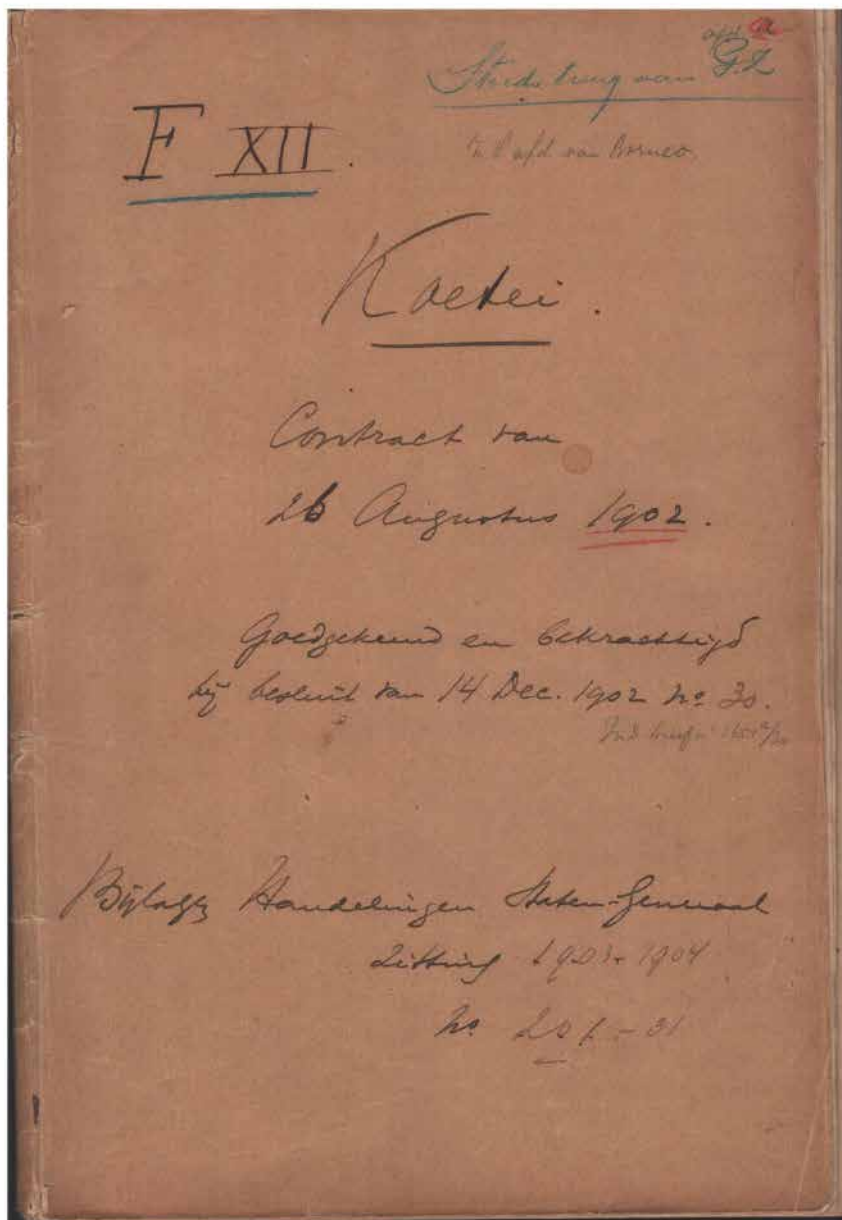 afd. a
van G.Z
Z. O afd van Borneo.
F XII.
Koetei.
Contract van
26 Augustus 1902.
Goedgekeurd en bekrachtigd
bij besluit van 14 Dec. 1902 No 30.
Ind
Bijlagen Handelingen Staten-Generaal
Zitting 1903-1904
No
31